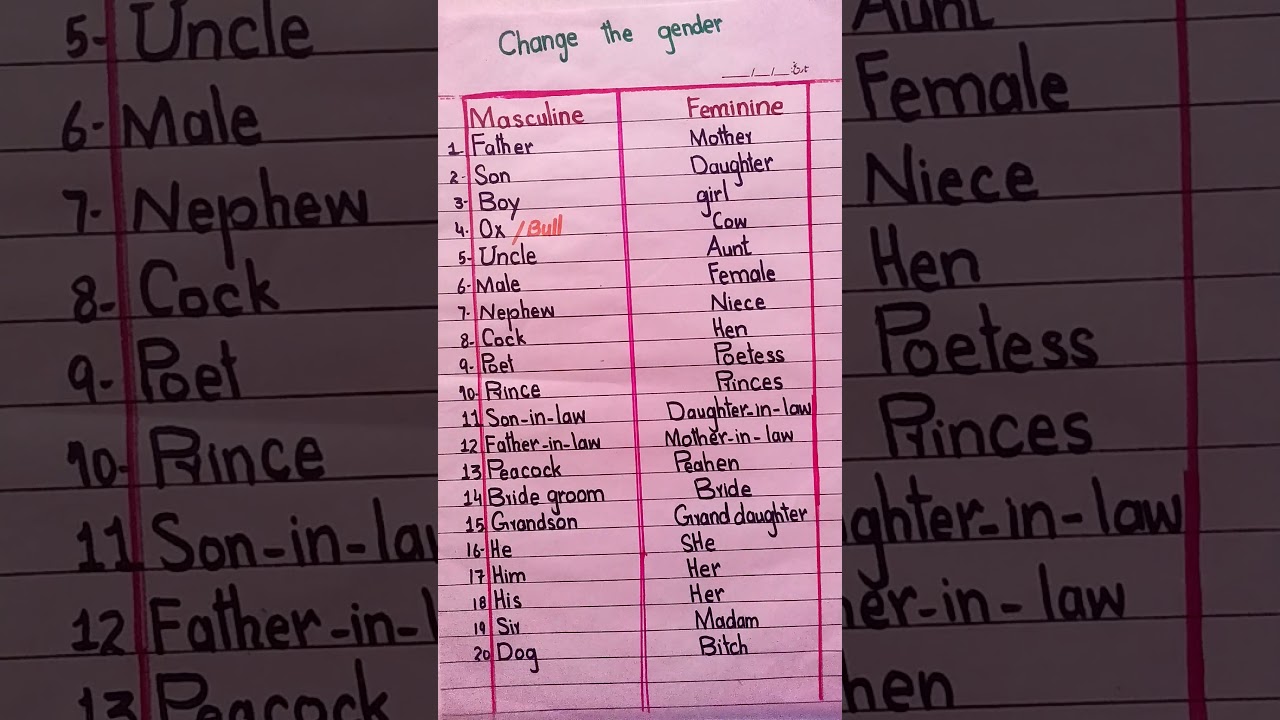 Change the gender
Masculine Feminine
1. Father Mother
2- Son Daughter
3- Boy girl
4. Ox /Bull Cow
5- Uncle Aunt
6- Male Female
7- Nephew Niece
8- Cock Hen
9- Poet Poetess
10- Prince Princes
11 Son-in-law Daughter-in-law
12 Father-in-law Mother-in-law
13 Peacock Peahen
14 Bride groom Bride
15 Grandson Grand daughter
16- He SHe
17 Him Her
18 His Her
19 Sir Madam
20 Dog Bitch
5- Uncle
6- Male
7- Nephew
8- Cock
9- Poet
10- Prince
11 Son-in-law
12 Father-in-l
13 Peacock
Aunt
Female
Niece
Hen
Poetess
Princes
ghter-in-law
er-in-law
hen